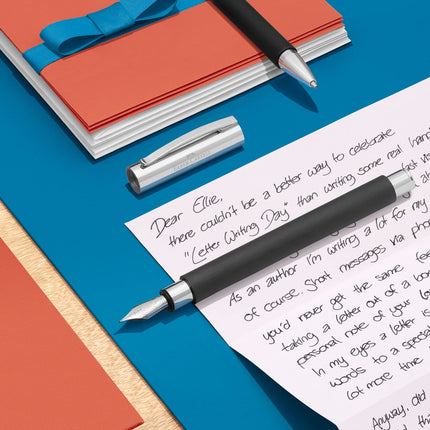 Dear Ellie,
there couldn't be a better way to celebrate
"Letter Writing Day" than writing some real hand
As an author I'm writing a lot for my
of course. Short messages via pho
you'd never get the same fee
taking a letter out of a bo
personal note of your lo
In my eyes a letter is
words to a special
lot more time
Anyway, did